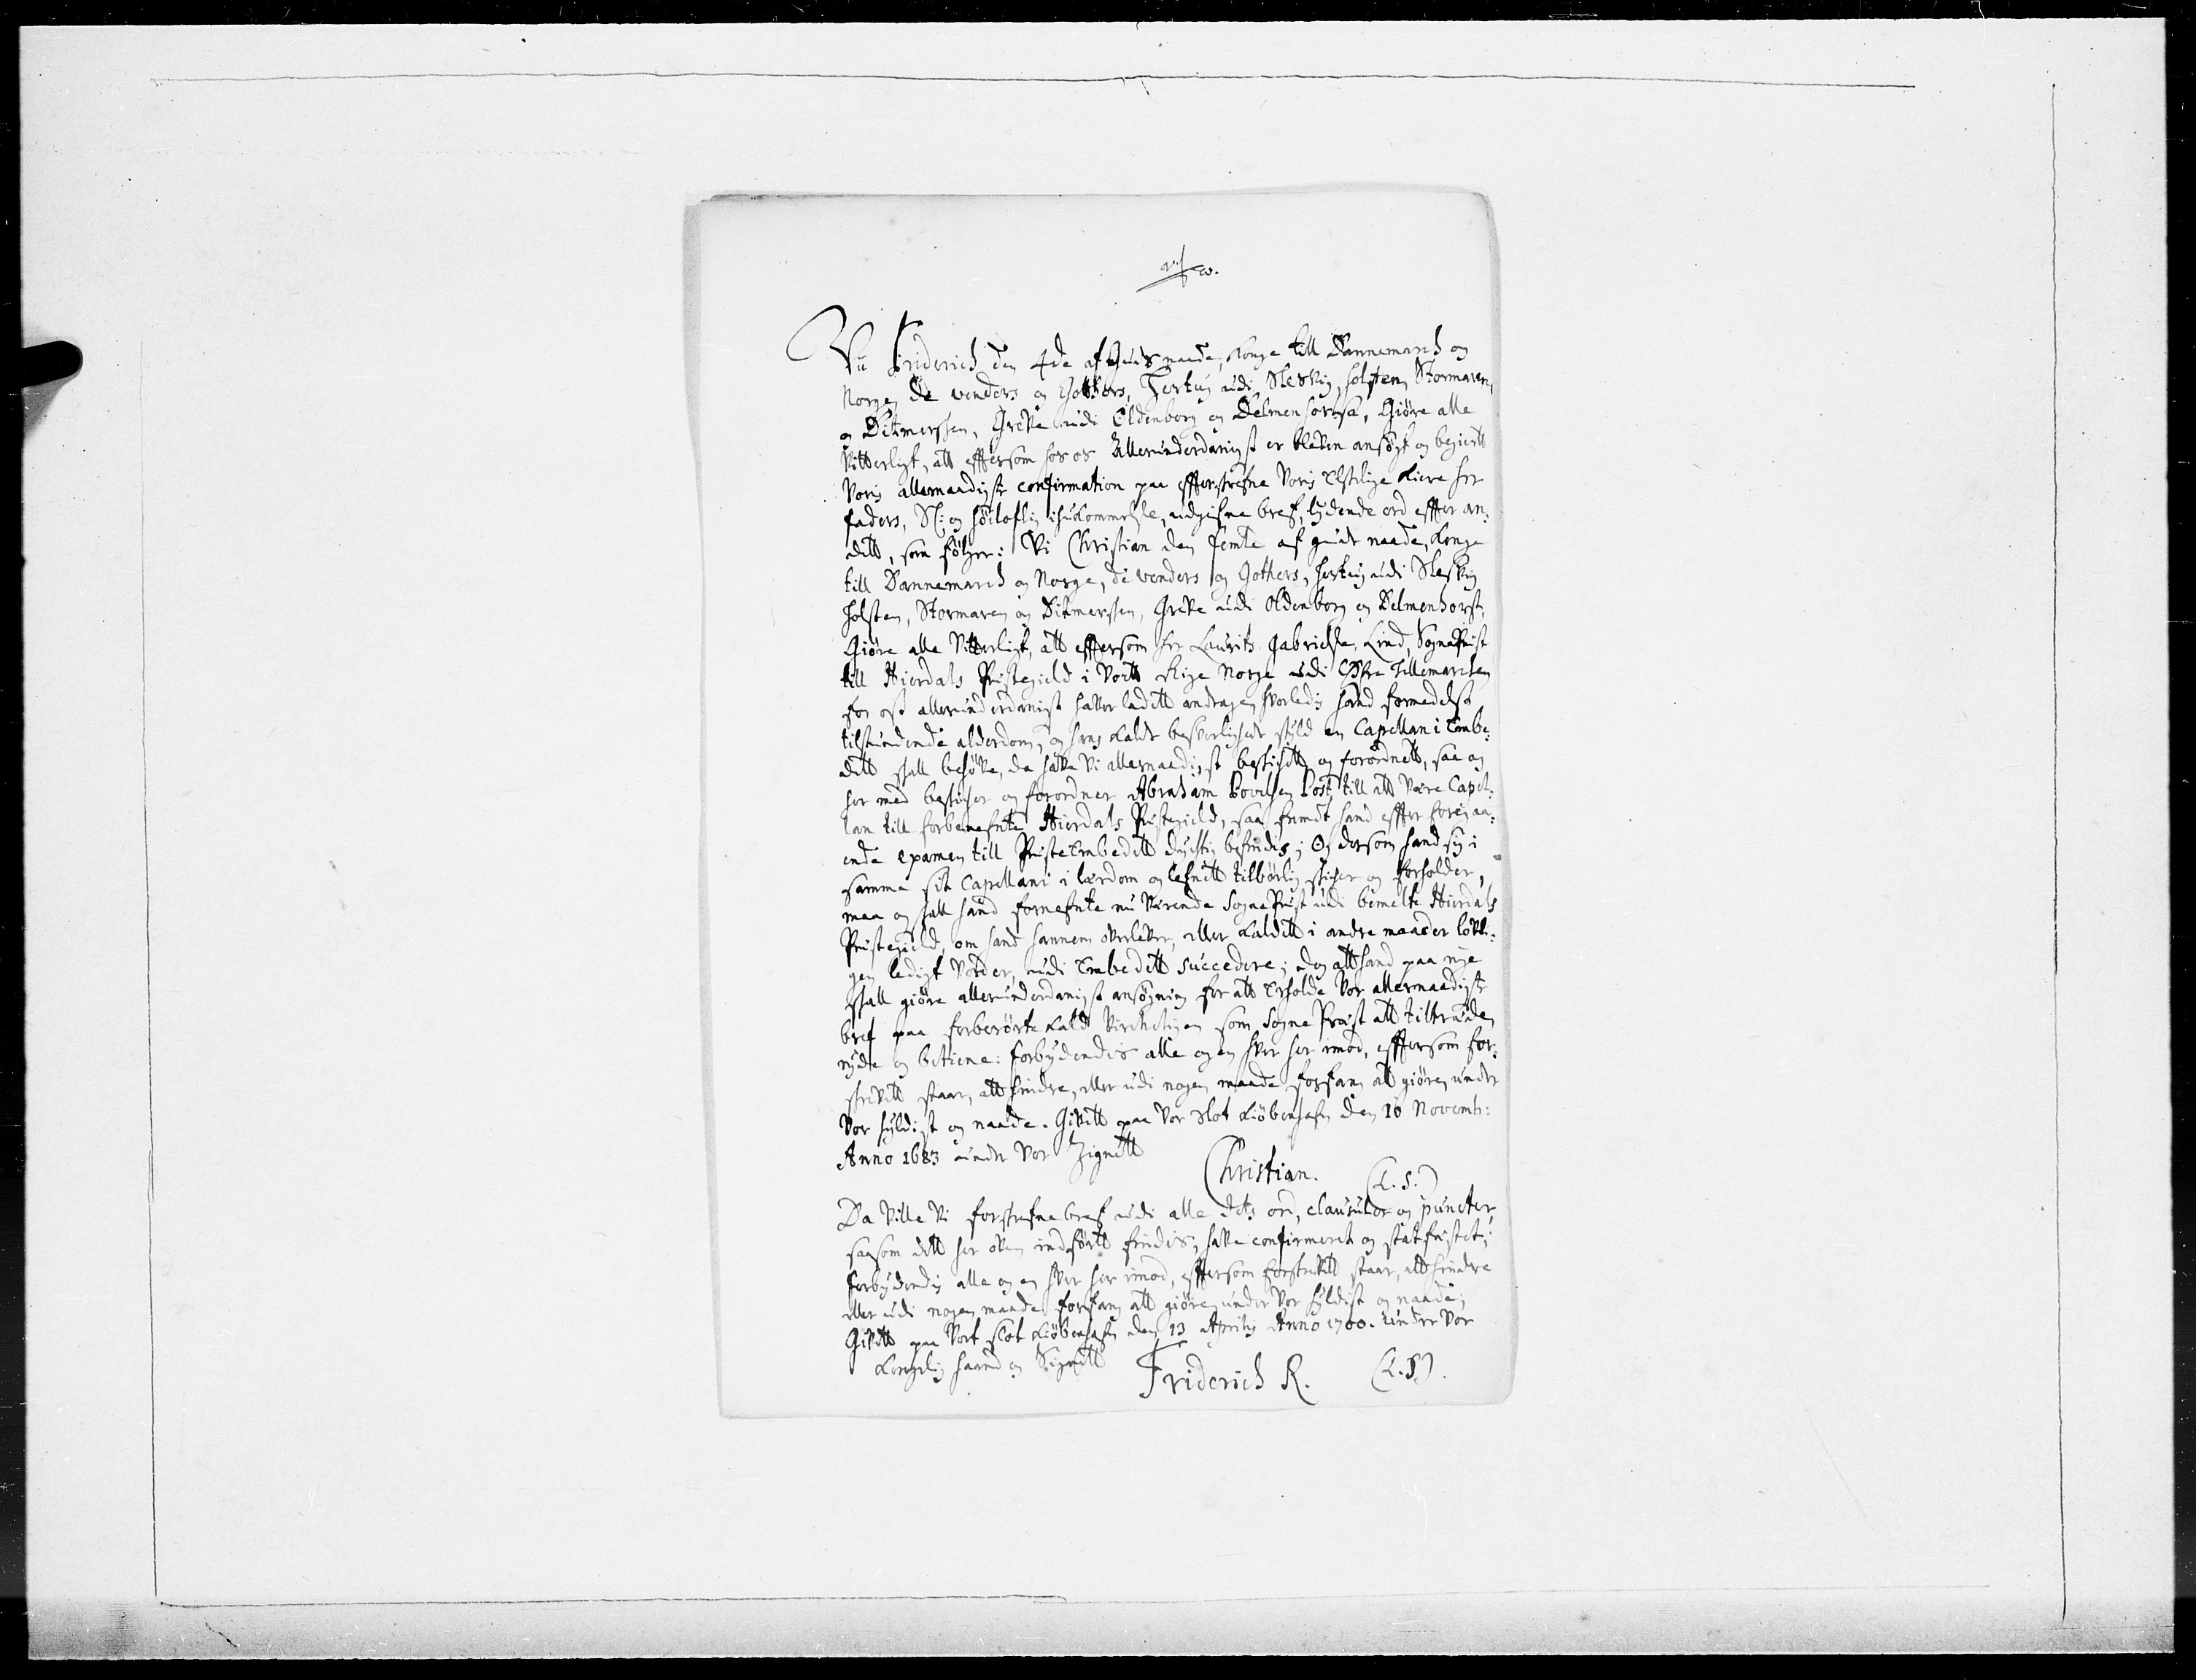 Vii Friderich den 4de af Guds naade, Konge till Dannemarch og
Norge, de venders og Gothers, Hertug udi Sleßvig, Holsten, Stormaren,
og Ditmerssen, Greve udi Oldenborg og Delmenhorst, Giøre alle
Vitterligt, att effersom hos os Allerunderdanigst er bleven ansøgt og begiertt
Voris allernaadigste confirmation paa effterskrefne Voris Elskelige Kiere Her
faders, Sl: og Høiloflig ihukommelse, udgifne bref, lydende ord effter an¬
dett, som følger: Vi Christian den femte af guds naade, Konge
till Dannemarch og Norge, de venders og Gothers, hertug udi Sleßvig
Holsten, Stormaren og Ditmerssen, Greve udi Oldenborg og Delmenhorst,
Giøre alle Vitterligt, att effersom Her Laurits Gabrielsen Lind, SognePrest
till Hierdals Prestegield i Vortt Rige Norge udi Østre Tellemarchen
for oß allerunderdanigst haver ladett andragen, hvorledis hand formedelst
tilstundende alderdom, og hans Kalds besverligheds skyld en Capellan i Embe¬
dett skall behøve, da have Vi allernaadigst bestichett og forordnett, saa og
her med besticher og forordner Abraham Bovelsen Post, till att være Capel¬
lan till forbenefnte Hierdals Prestegield, saa fremdt hand effter foregaa¬
ende examen till PresteEmbedett dychtig befindis; Og dersom hand sig i
samme sit Capellani i lærdom og lefnett tilbørlig skicher og forholder,
maa og skall hand fornefnte nu Værende SognePrest udi bemelte Hierdals
Prestegield, om hand hannem overlever, eller Kaldett i andre maader lovli¬
gen ledigt vorder, udi Embedett succedere; dog att hand paa nye
skall giøre allerunderdanigst ansøgning for att Erholde Vor allernaadigste
bref paa forberørte Kald Virchelig en som Sogne Præst att tiltræde,
nyde og betiene: forbydendis alle og en hver her imod, effersom for¬
skrevitt staar, att hindre, eller udi nogen maade forfang att giøre, under
Vor hyldist og naade. Givett paa Vor Slot Kiøbenhafn den 10 Novemb:
Anno 1683 under Vor Zignett
Christian. (L.S.)
Da Ville Vi forskrefne bref udi alle dets ord, clausuler og puncter,
saasom dett her oven indført findis, have confirmeret og stadfestet;
forbydendis alle og en hver her imod, effersom forskrevitt staar, att hindre
eller udi nogen maade forfang att giøre, under Vor hyldist og naade;
Givett paa Vort slot Kiøbenhafn den 13 Aprilis Anno 1700. under Vor
Kongelig haand og Signett
Friderich R. (L.S.).